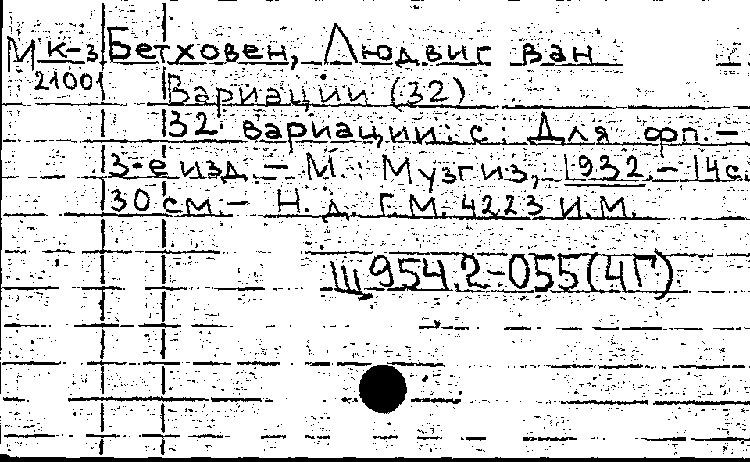 М к-3 Бетховен, Людвиг ван
21001 Вариации (32)
32 вариации: с: Для фп. -
3-е изд. - М.: Музгиз, 1932. - 14с.
30 см. - Н. д. Г.М. 4223 И.М.
Щ954.2-055(4Г)